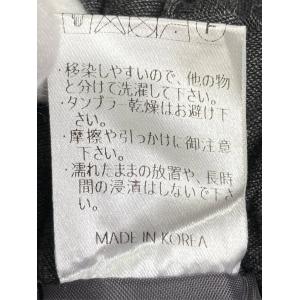 F
・移染しやすいので、他の物
と分けて洗濯して下さい。
・タンブラー乾燥はお避け下
さい。
・摩擦や引っかけに御注意
下さい。
・濡れたままの放置や、長時
間の浸漬はしないで下さ
い。
MADE IN KOREA